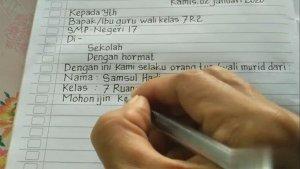 Kamis, 02 Januari 2020
Kepada Yth
Bapak/Ibu guru wali kelas 7R2
SMP Negeri 17
Di -
Sekolah
Dengan hormat
Dengan ini kami selaku orang tua/wali murid dari :
Nama : Samsul Hadi
Kelas : 7 Ruan
Mohon ijin Ke